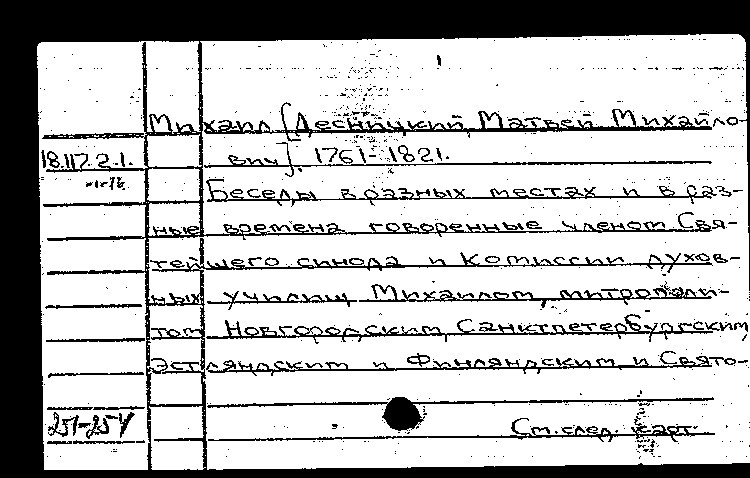 Михаил [Десницкий, Матвей Михайло-
18.117.2.1. вич]. 1761-1821.
Беседы в разных местах и в раз-
ные времена говоренные членом Свя-
тейшего синода и Комиссии духов-
ных училищ Михаилом, митрополи-
том Новгородским, Санктпетербургским,
Эстляндским и Финляндским, и Свято-
251-254
См. след. карт.